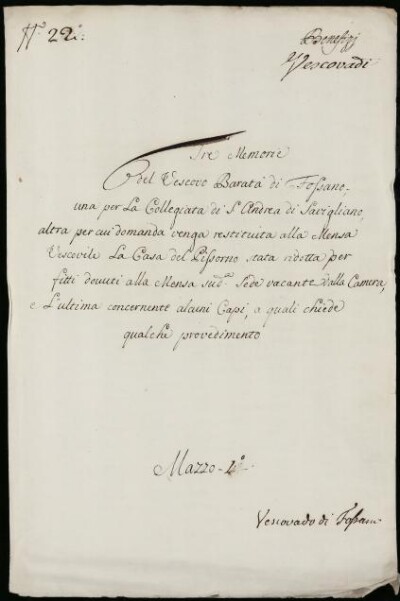 N.° 22.°
Benefizj
Vescovadi
Tre Memorie
del Vescovo Barata di Fossano,
una per La Collegiata di S.t Andrea di Savigliano,
altra per cui domanda venga restituita alla Mensa
Vescovile La Casa del stata ridotta per
fitti devuti alla Mensa sud.a Sede vacante dalla Camera,
e L'ultima concernente alcuni Capi, a quali chiede
qualche provedimento
Mazzo 1.°
Vescovado di Fossano